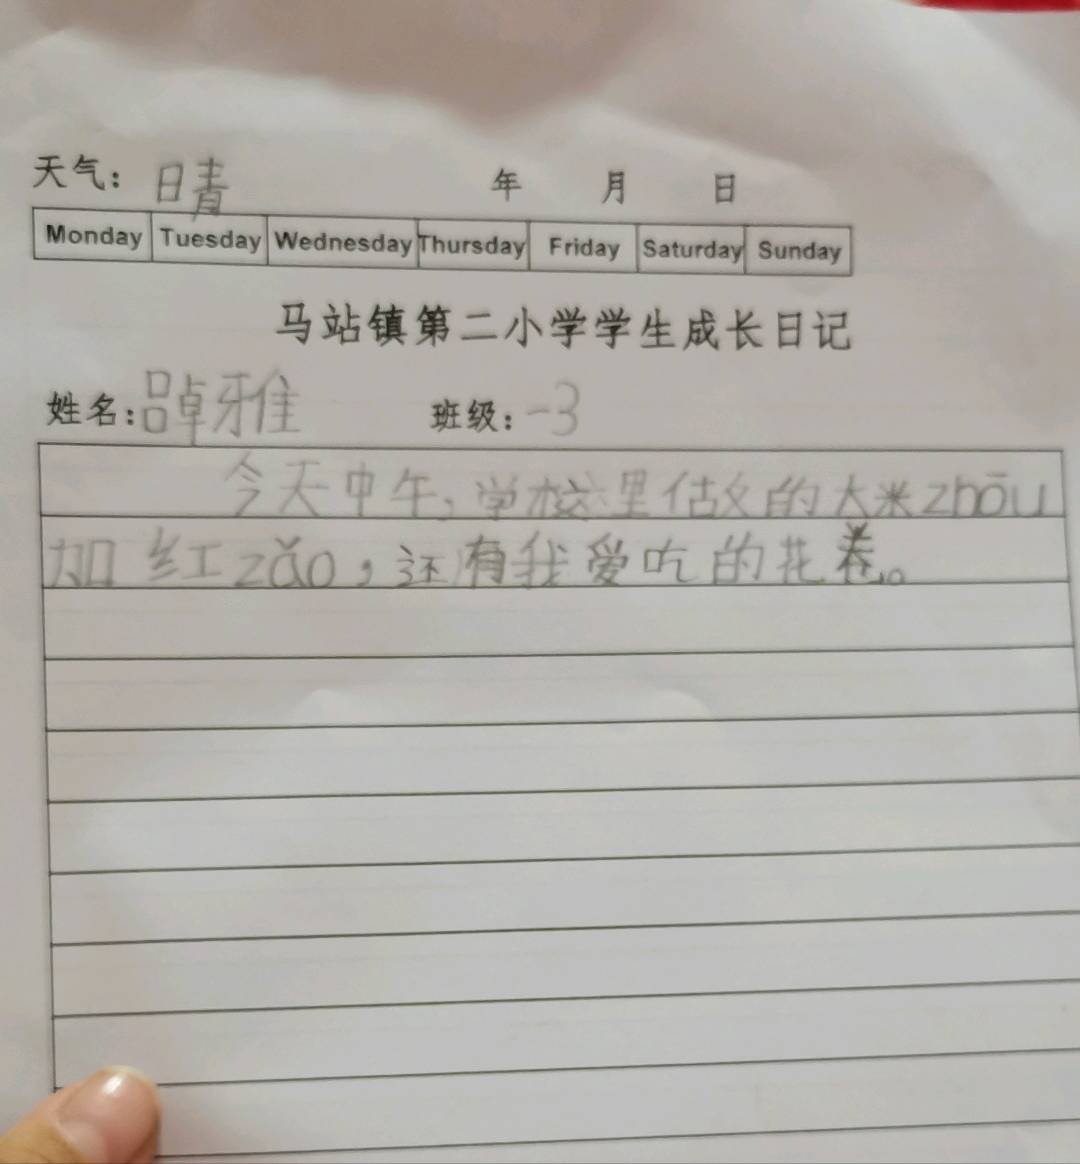 天气：晴 年 月 日
Monday Tuesday Wednesday Thursday Friday Saturday Sunday
马站镇第二小学学生成长日记
姓名：吕卓雅 班级：一3
今天中午，学校里估文的大米zhōu
加红zǎo，还有我爱吃的花卷。